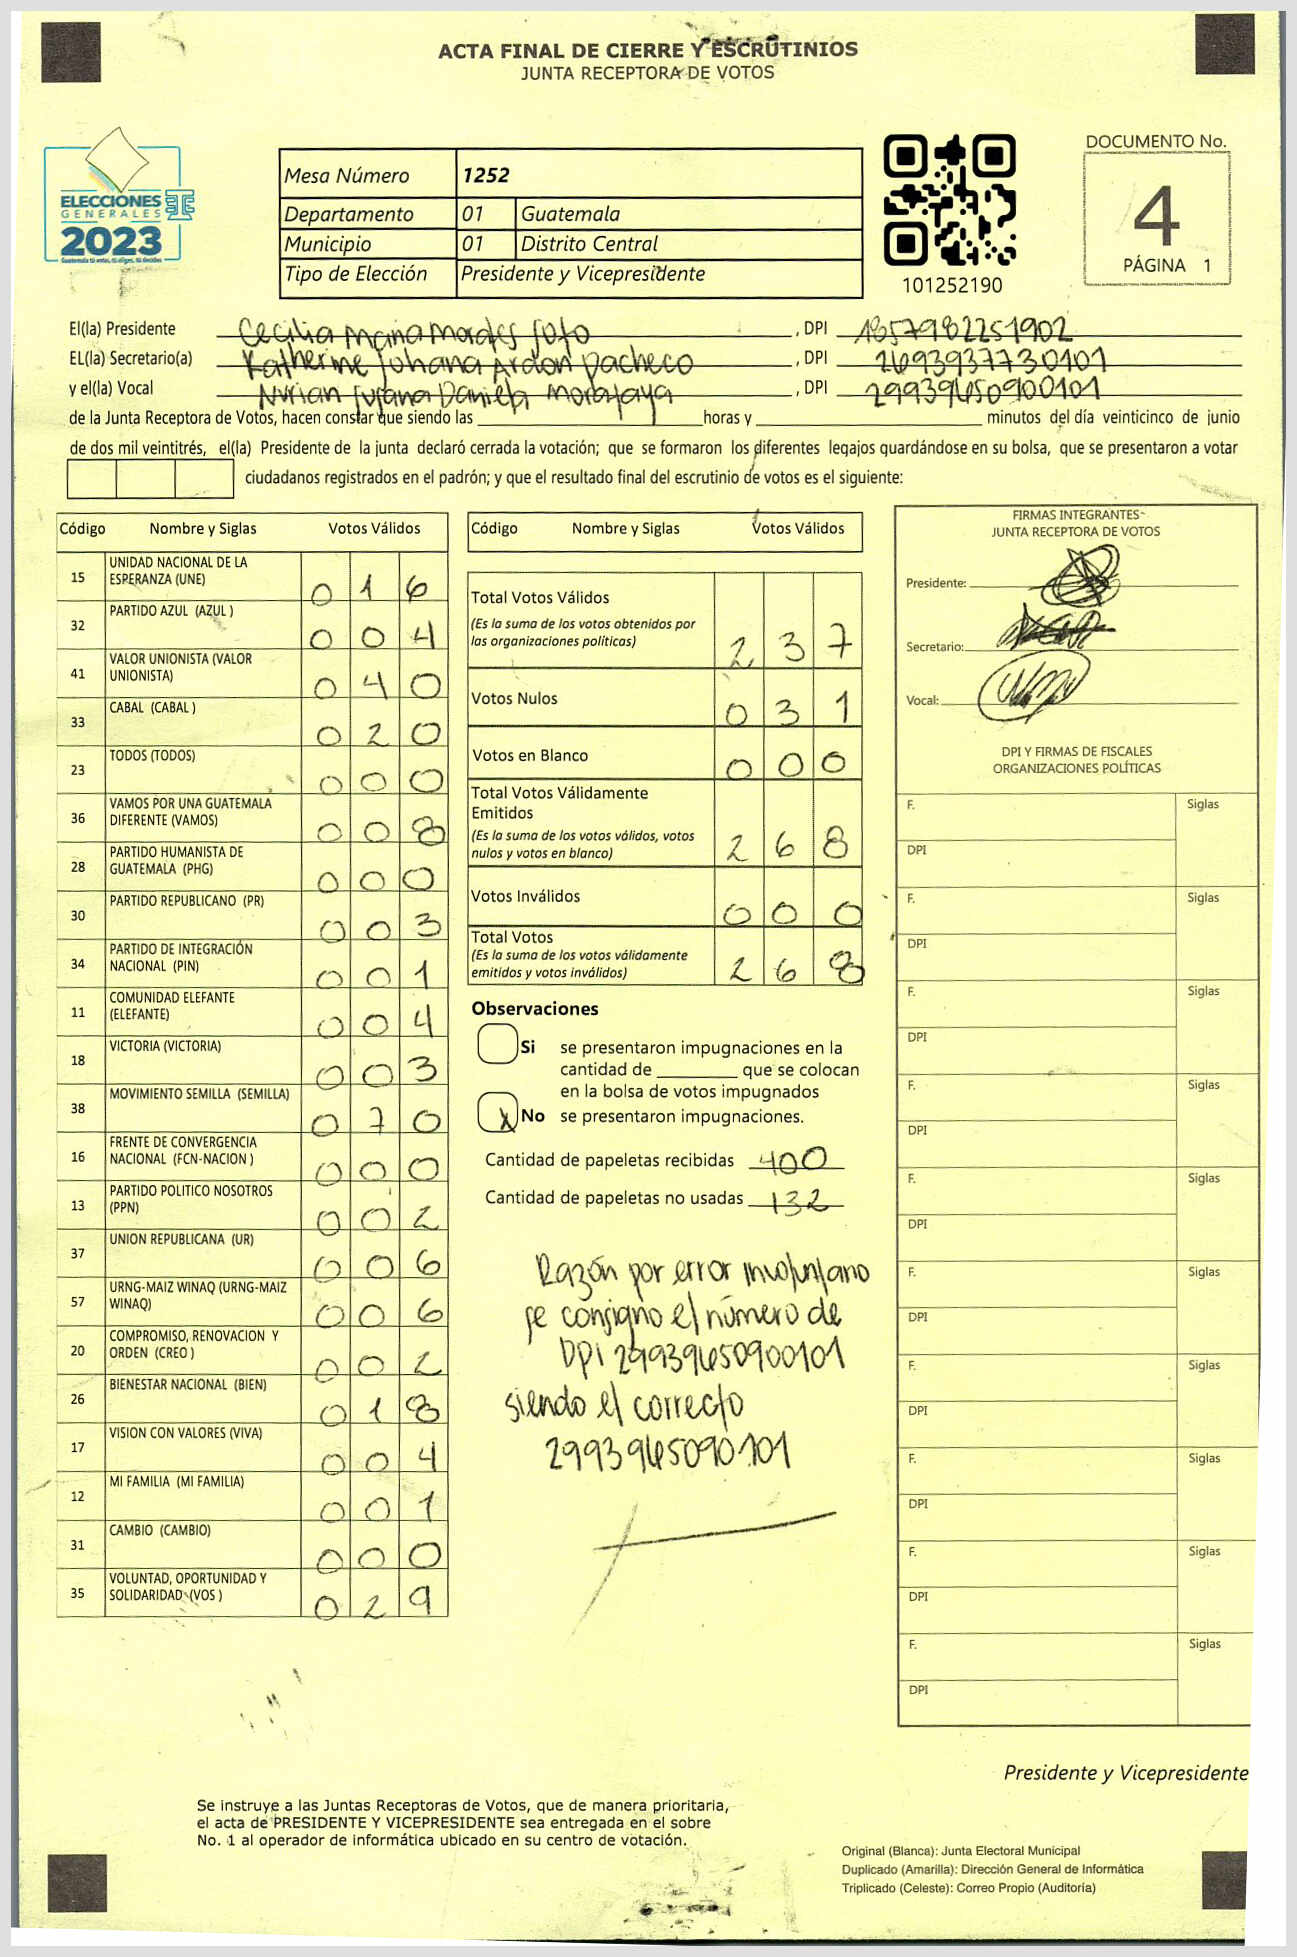 ACTA FINAL DE CIERRE Y ESCRUTINIOS
JUNTA RECEPTORA DE VOTOS
ELECCIONES
GENERALES
2023
Guatemala tú votas, tú eliges, tú decides
Mesa Número 1252
Departamento 01 Guatemala
Municipio 01 Distrito Central
Tipo de Elección Presidente y Vicepresidente
101252190
DOCUMENTO No.
4
PÁGINA 1
El(la) Presidente Cecilia Maria Morales Soto , DPI 1857982251902
EL(la) Secretario(a) Katherine Johana Ardon Pacheco , DPI 2693937730101
y el(la) Vocal Daniela Morataya , DPI 29939650900101
de la Junta Receptora de Votos, hacen constar que siendo las horas y minutos del día veinticinco de junio
de dos mil veintitrés, el(la) Presidente de la junta declaró cerrada la votación; que se formaron los diferentes legajos quardándose en su bolsa, que se presentaron a votar
ciudadanos registrados en el padrón; y que el resultado final del escrutinio de votos es el siguiente:
Código Nombre y Siglas Votos Válidos
15 UNIDAD NACIONAL DE LA
ESPERANZA (UNE) 0 1 6
32 PARTIDO AZUL (AZUL ) 0 0 4
41 VALOR UNIONISTA (VALOR
UNIONISTA) 0 4 0
33 CABAL (CABAL ) 0 2 0
23 TODOS (TODOS) 0 0 0
36 VAMOS POR UNA GUATEMALA
DIFERENTE (VAMOS) 0 0 8
28 PARTIDO HUMANISTA DE
GUATEMALA (PHG) 0 0 0
30 PARTIDO REPUBLICANO (PR) 0 0 3
34 PARTIDO DE INTEGRACIÓN
NACIONAL (PIN) 0 0 1
11 COMUNIDAD ELEFANTE
(ELEFANTE) 0 0 4
18 VICTORIA (VICTORIA) 0 0 3
38 MOVIMIENTO SEMILLA (SEMILLA) 0 7 0
16 FRENTE DE CONVERGENCIA
NACIONAL (FCN-NACION ) 0 0 0
13 PARTIDO POLITICO NOSOTROS
(PPN) 0 0 2
37 UNION REPUBLICANA (UR) 0 0 6
57 URNG-MAIZ WINAQ (URNG-MAIZ
WINAQ) 0 0 6
20 COMPROMISO, RENOVACION Y
ORDEN (CREO ) 0 0 2
26 BIENESTAR NACIONAL (BIEN) 0 1 8
17 VISION CON VALORES (VIVA) 0 0 4
12 MI FAMILIA (MI FAMILIA) 0 0 1
31 CAMBIO (CAMBIO) 0 0 0
35 VOLUNTAD, OPORTUNIDAD Y
SOLIDARIDAD (VOS ) 0 2 9
Código Nombre y Siglas Votos Válidos
Total Votos Válidos
(Es la suma de los votos obtenidos por
las organizaciones políticas) 2 3 7
Votos Nulos 0 3 1
Votos en Blanco 0 0 0
Total Votos Válidamente
Emitidos
(Es la suma de los votos válidos, votos
nulos y votos en blanco) 2 6 8
Votos Inválidos 0 0 0
Total Votos
(Es la suma de los votos válidamente
emitidos y votos inválidos) 2 6 8
Observaciones
Si se presentaron impugnaciones en la
cantidad de que se colocan
en la bolsa de votos impugnados
X No se presentaron impugnaciones.
Cantidad de papeletas recibidas 400
Cantidad de papeletas no usadas 132
Razón por error involuntario
se consigno el número de
DPI 29939650900101
siendo el correcto
2993965090101
FIRMAS INTEGRANTES
JUNTA RECEPTORA DE VOTOS
Presidente:
Secretario:
Vocal:
DPI Y FIRMAS DE FISCALES
ORGANIZACIONES POLÍTICAS
F. Siglas
DPI
F. Siglas
DPI
F. Siglas
DPI
F. Siglas
DPI
F. Siglas
DPI
F. Siglas
DPI
F. Siglas
DPI
F. Siglas
DPI
F. Siglas
DPI
F. Siglas
DPI
Presidente y Vicepresidente
Se instruye a las Juntas Receptoras de Votos, que de manera prioritaria,
el acta de PRESIDENTE Y VICEPRESIDENTE sea entregada en el sobre
No. 1 al operador de informática ubicado en su centro de votación.
Original (Blanca): Junta Electoral Municipal
Duplicado (Amarilla): Dirección General de Informática
Triplicado (Celeste): Correo Propio (Auditoría)